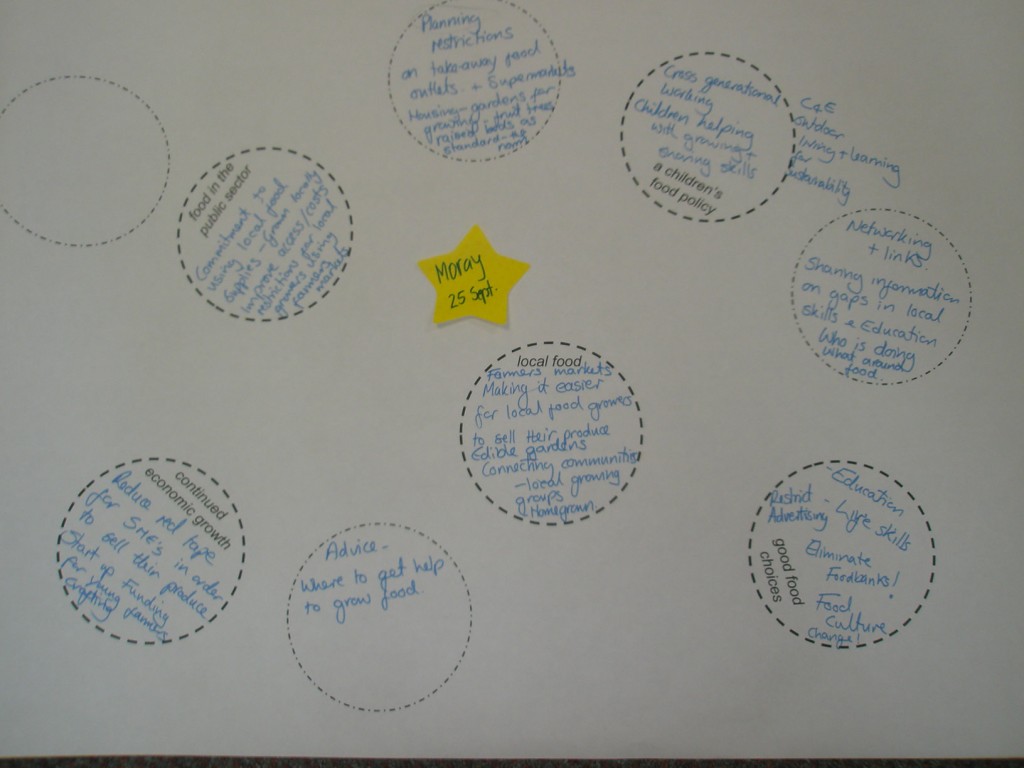 Planning
restrictions
on take-away food
outlets. + Supermarkets
Housing - gardens for
growing - fruit trees,
raised beds as
standard - as
norm
Cross generational
working
Children helping
with growing +
sharing skills
a children's
food policy
outdoor
living + learning
for
sustainability
food in the
public sector
Commitment to
using local food
supplies - grown locally
improve access/costs/
restrictions for local
growers using
farmers
markets
Moray
25 Sept.
Networking
+ links.
Sharing information
on gaps in local
skills & Education
Who is doing
what around
food
local food
Farmers markets
Making it easier
for local food growers
to sell their produce
Edible gardens
Connecting communities
- local growing
groups
Homegrown.
continued
economic growth
Reduce red tape
for SME's in order
to sell their produce
Start up Funding
for young farmers
crofting
Advice -
Where to get help
to grow food.
- Education
Restrict - Lyfe skills
Advertising
Eliminate
Foodbanks!
good food
choices
Food
Culture
change!